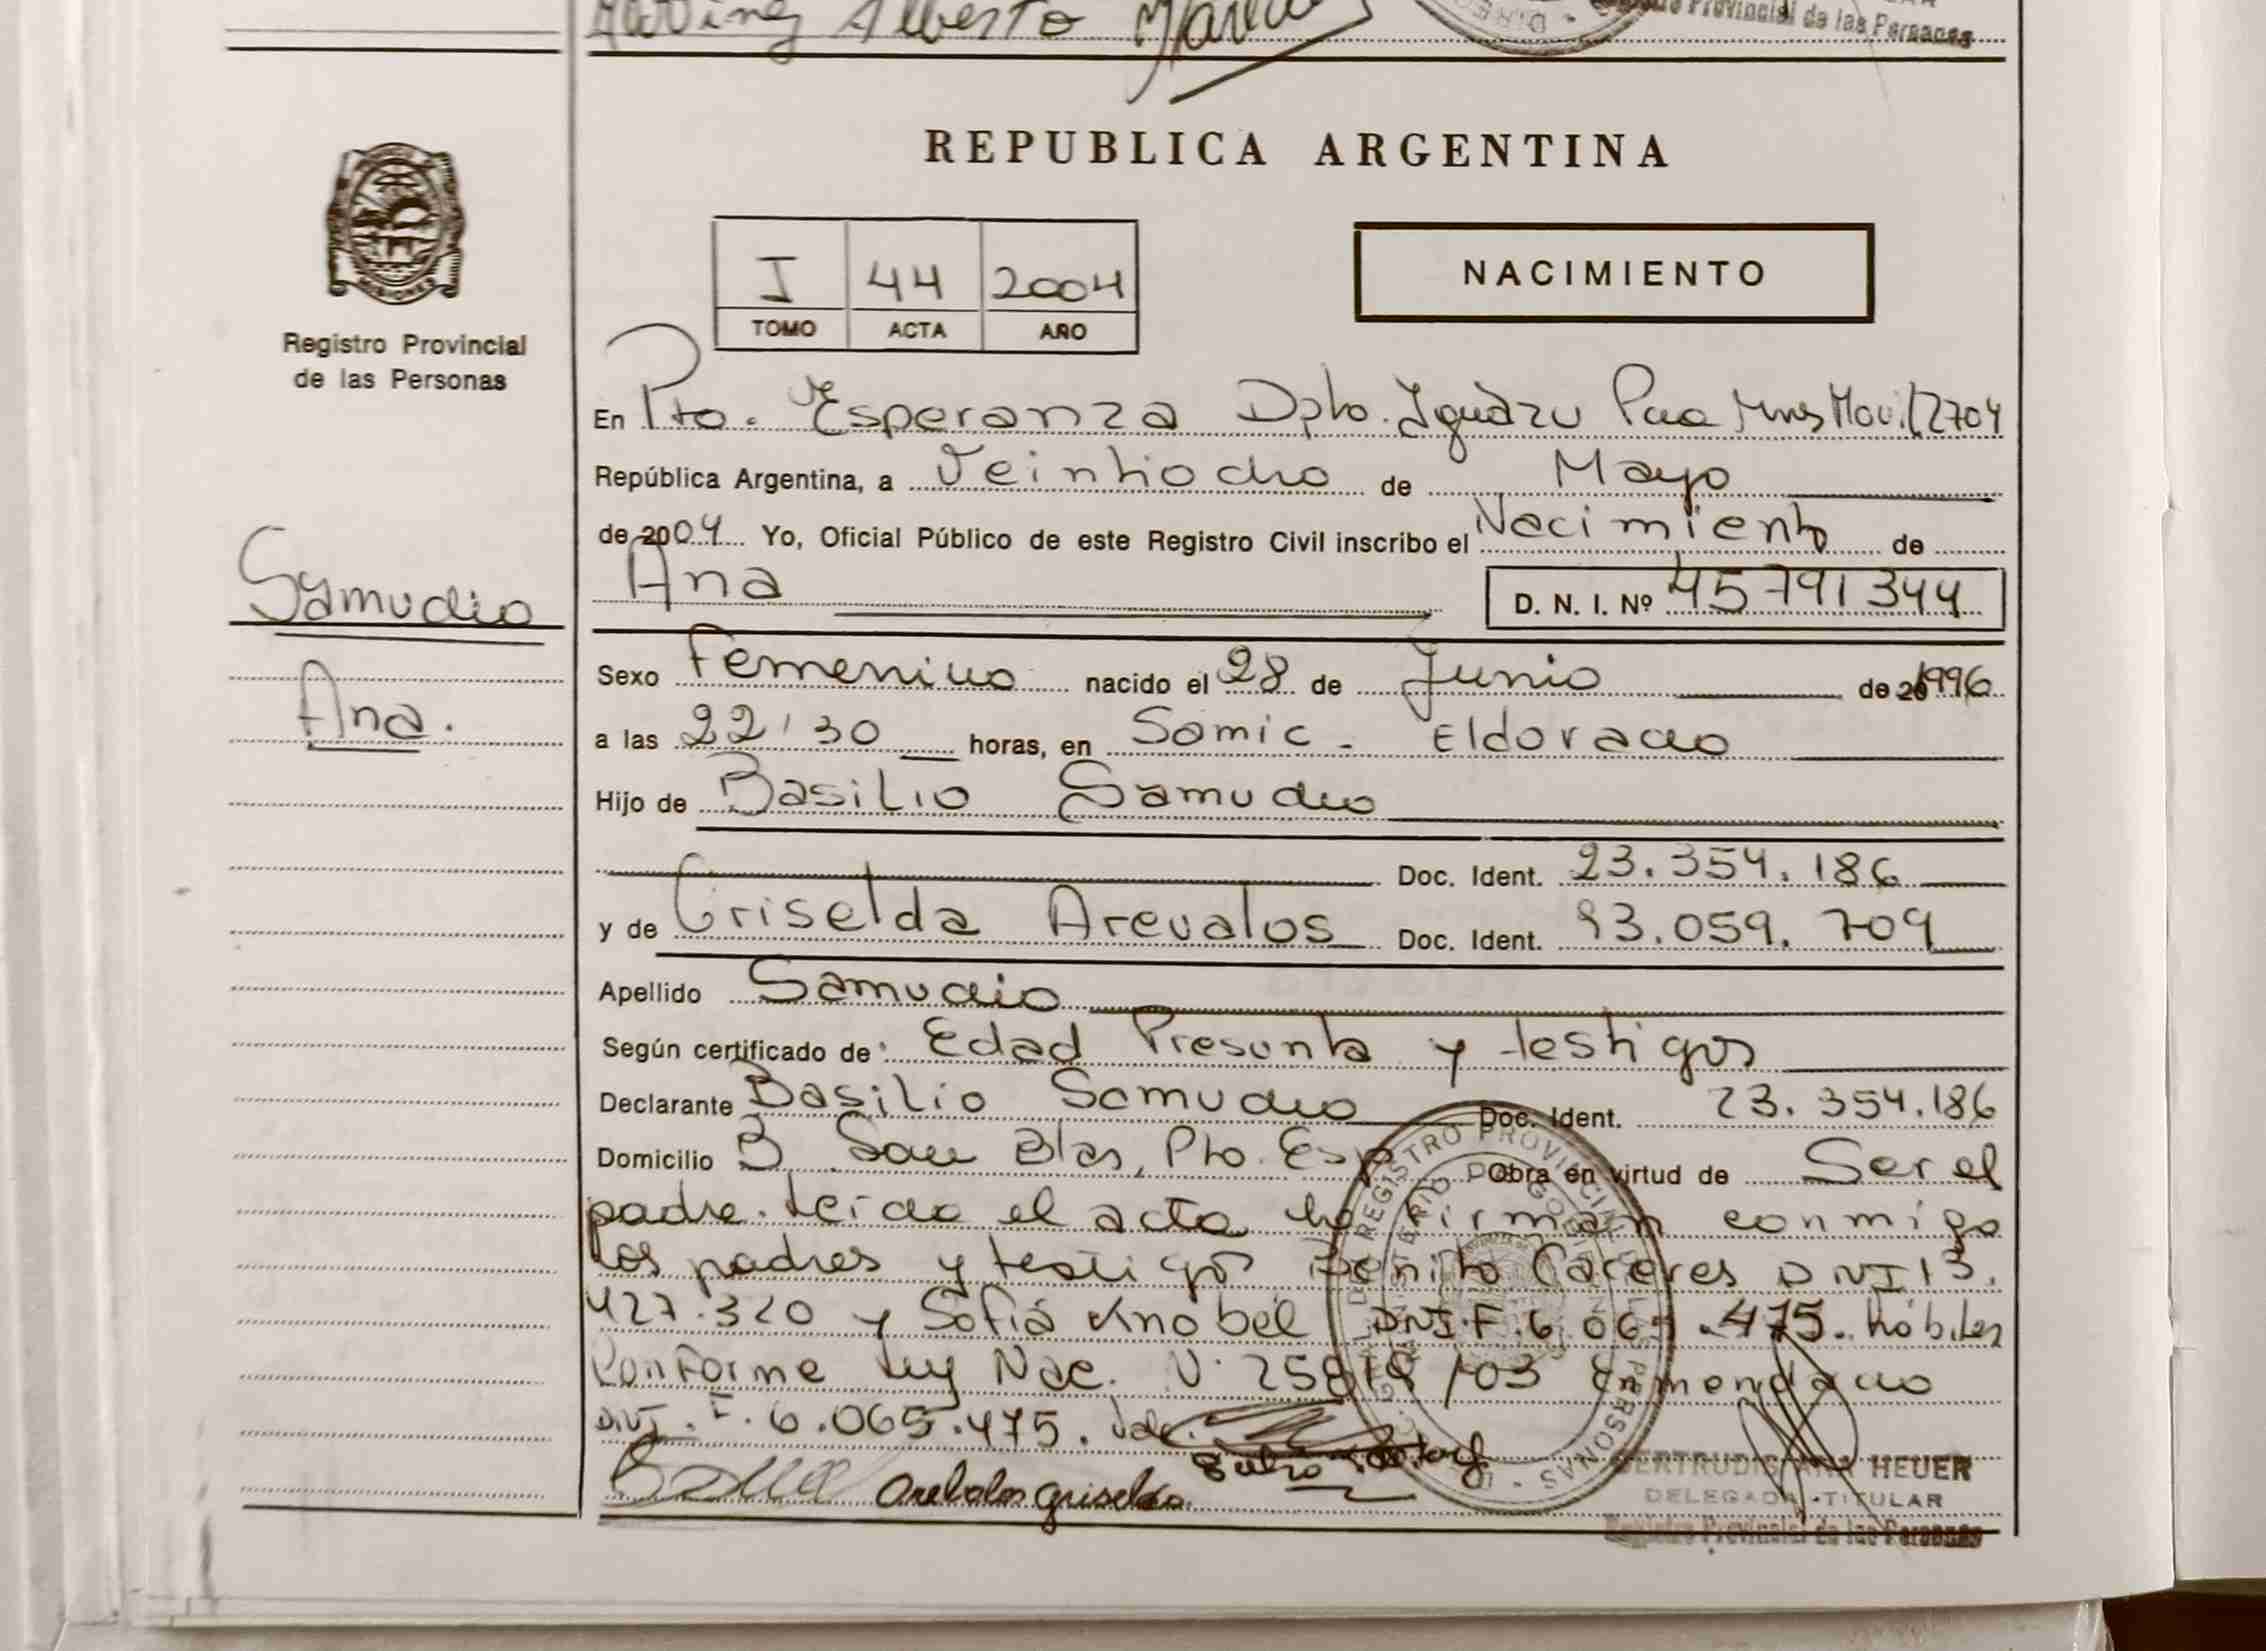 Alberto
Provincial de las Personas
REPUBLICA ARGENTINA
I 44 2004
TOMO ACTA AÑO
NACIMIENTO
MISIONES
Registro Provincial
de las Personas
En Pto. Esperanza Dpto. Iguazu Pcia Mnes Movil 2704
República Argentina, a Veintiocho de Mayo
de 2004 Yo, Oficial Público de este Registro Civil inscribo el Nacimiento de
Ana D. N. I. Nº 45791344
Samudio
Ana.
Sexo Femenino nacido el 28 de Junio de 1996
a las 22'30 horas, en Samic - Eldorado
Hijo de Basilio Samudio
Doc. Ident. 23.354.186
y de Griselda Arevalos Doc. Ident. 93.059.709
Apellido Samudio
Según certificado de: Edad Presunta y testigos
Declarante Basilio Samudio Doc. Ident. 23.354.186
Domicilio B San Blas, Pto. Esp Obra en virtud de Ser el
padre. Leida el acta la firman conmigo
los padres y testigos Benito Caceres DNI 13.
427.320 y Sofia Knobel DNI.F.6.065.475. habiles
Conforme Ley Nac. N. 25819/03 Enmendado
DNI. F. 6.065.475. Vale.
Arebalos Griselda
GERTRUDIS ANA HEUER
DELEGADA TITULAR
Registro Provincial de las Personas